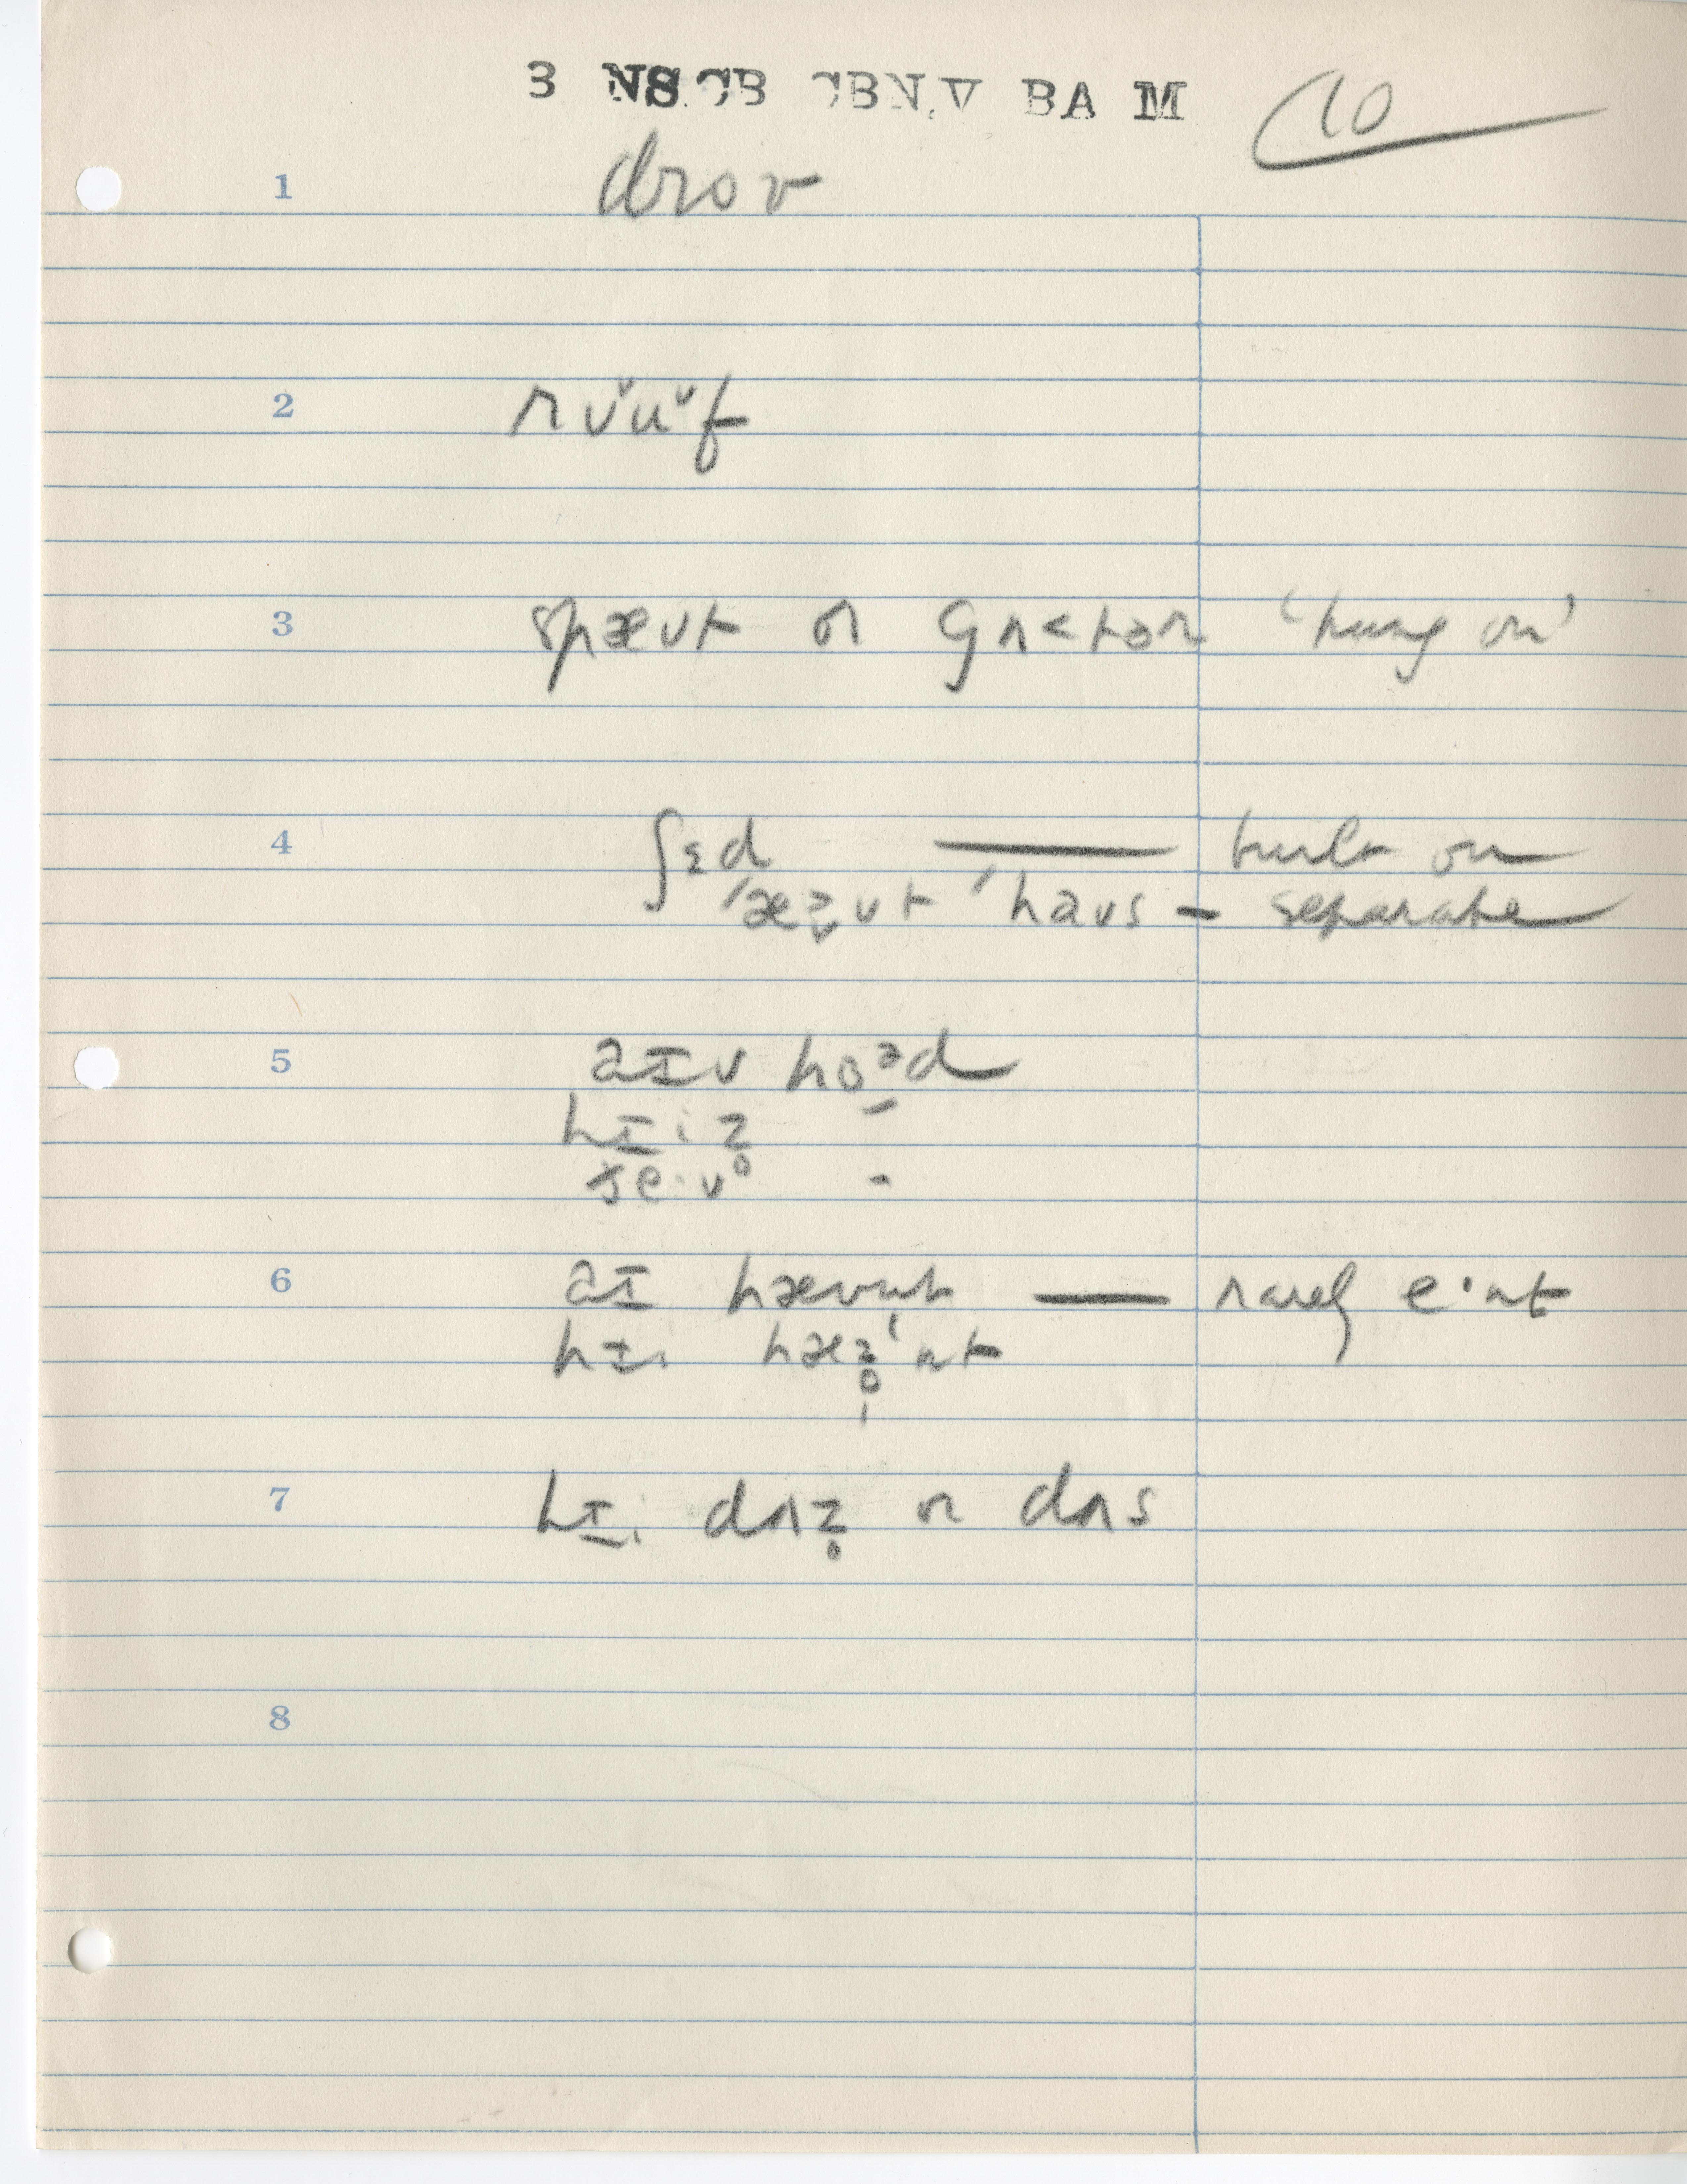 3 NS CB CBN.V BA M 10
1 drov
2 rʊ˅u˅f
3 spæʊt or gʌtər 'hung on'
4 ʃɛd — built on
'æʊt 'haʊs – separate
5 aɪv hɒəd –
hɪ·i z̥ –
ðe·v
6 aɪ hævn̩t — rarely e·nt
hɪi hæz̥n̩t
7 hɪi dʌz̥ or dʌs
8